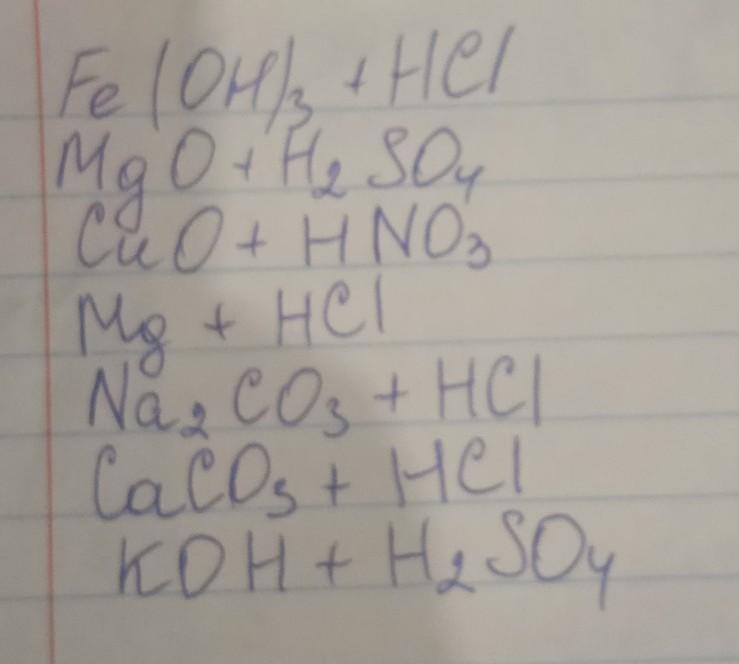 Fe(OH)₃ + HCl
MgO + H₂SO₄
CuO + HNO₃
Mg + HCl
Na₂CO₃ + HCl
CaCO₃ + HCl
KOH + H₂SO₄